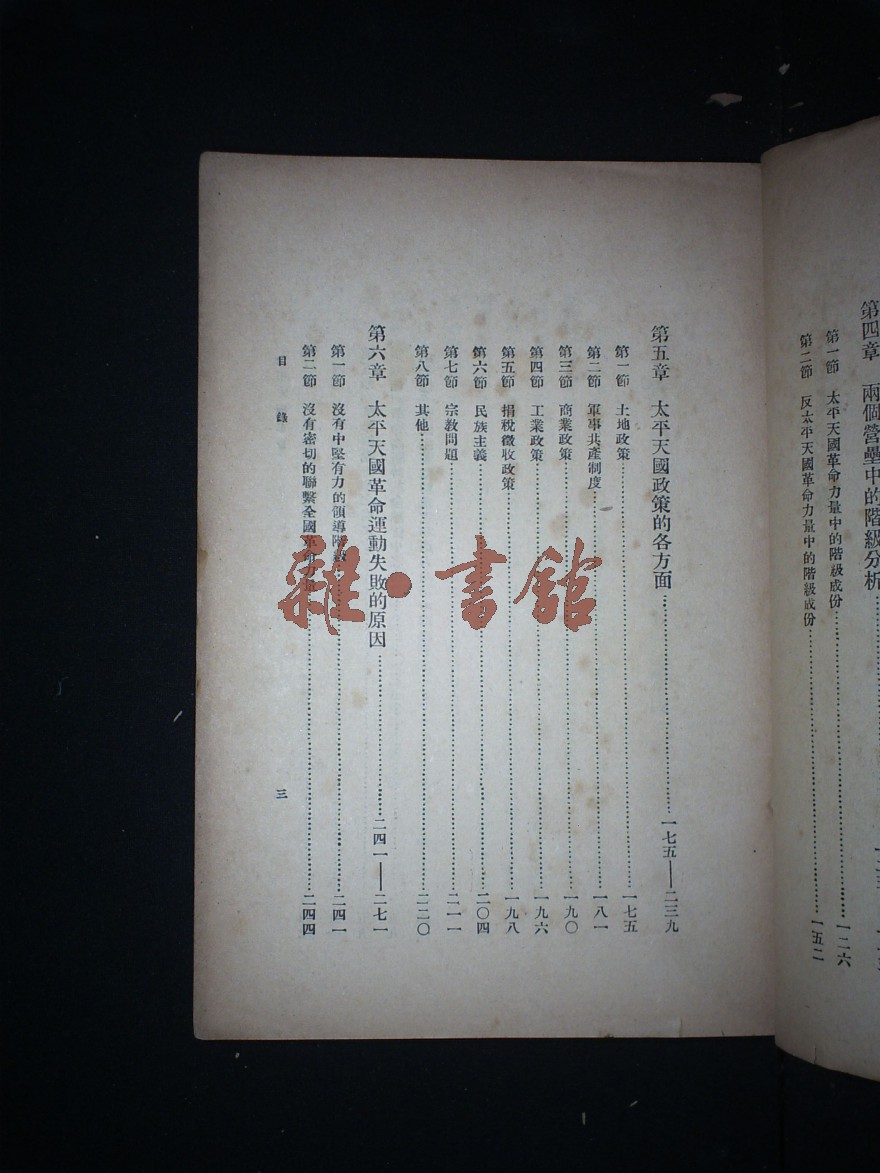 第四章 兩個營壘中的階級分析
第一節 太平天國革命力量中的階級成份……一二六
第二節 反太平天國革命力量中的階級成份……一五二
第五章 太平天國政策的各方面……一七五——二三九
第一節 土地政策……一七五
第二節 軍事共產制度……一八一
第三節 商業政策……一九〇
第四節 工業政策……一九六
第五節 捐稅徵收政策……一九八
第六節 民族主義……二〇四
第七節 宗教問題……二一一
第八節 其他……二二〇
第六章 太平天國革命運動失敗的原因……二四一——二七一
第一節 沒有中堅有力的領導階級……二四一
第二節 沒有密切的聯繫全國革命力量……二四四
目錄
三
雜·書館